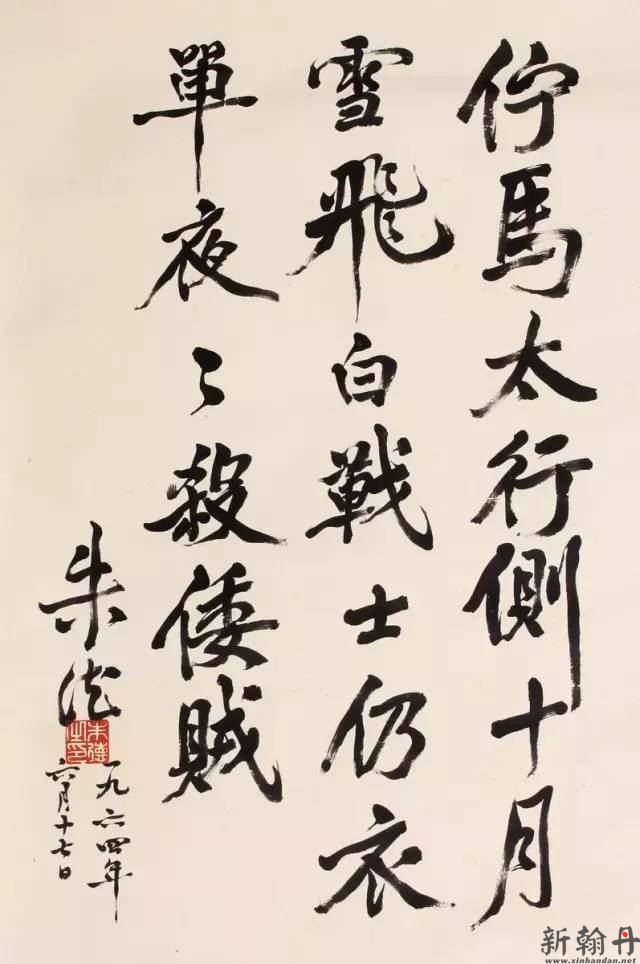 佇馬太行側十月
雪飛白戰士仍衣
單夜々殺倭賊
朱德
朱德之印
一九六四年
六月十七日
新翰丹
www.xinhandan.net